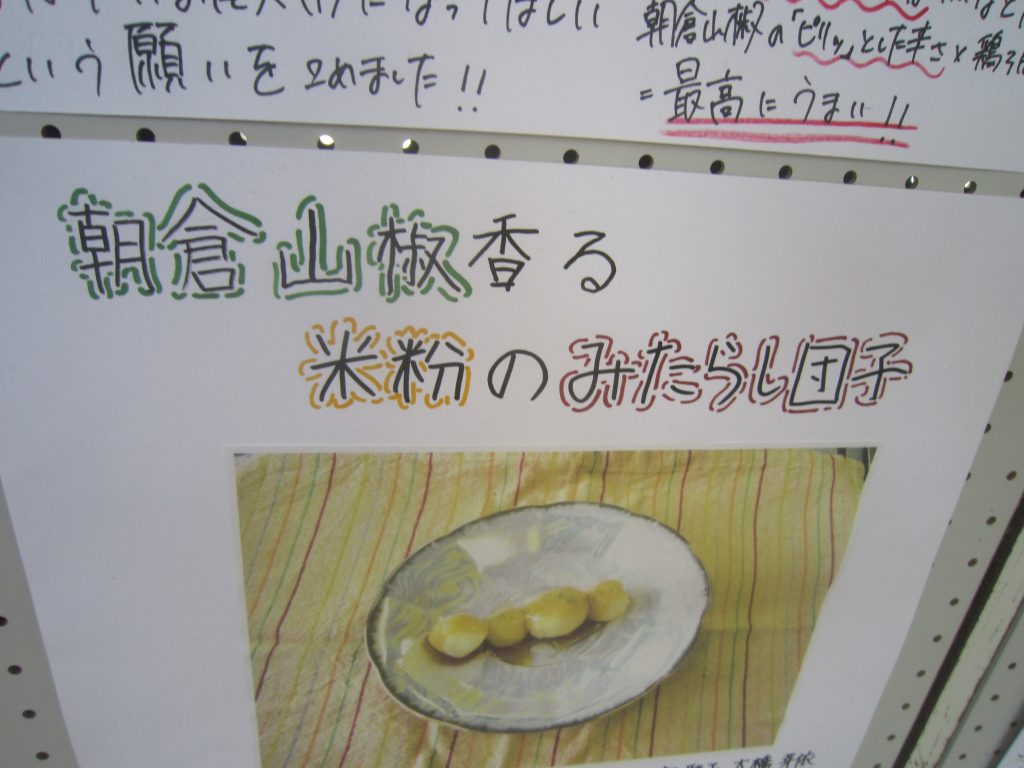 という願いをこめました!!
朝倉山椒の「ピリッ」とした辛さ×鶏
=最高にうまい!!
朝倉山椒香る
米粉のみたらし団子